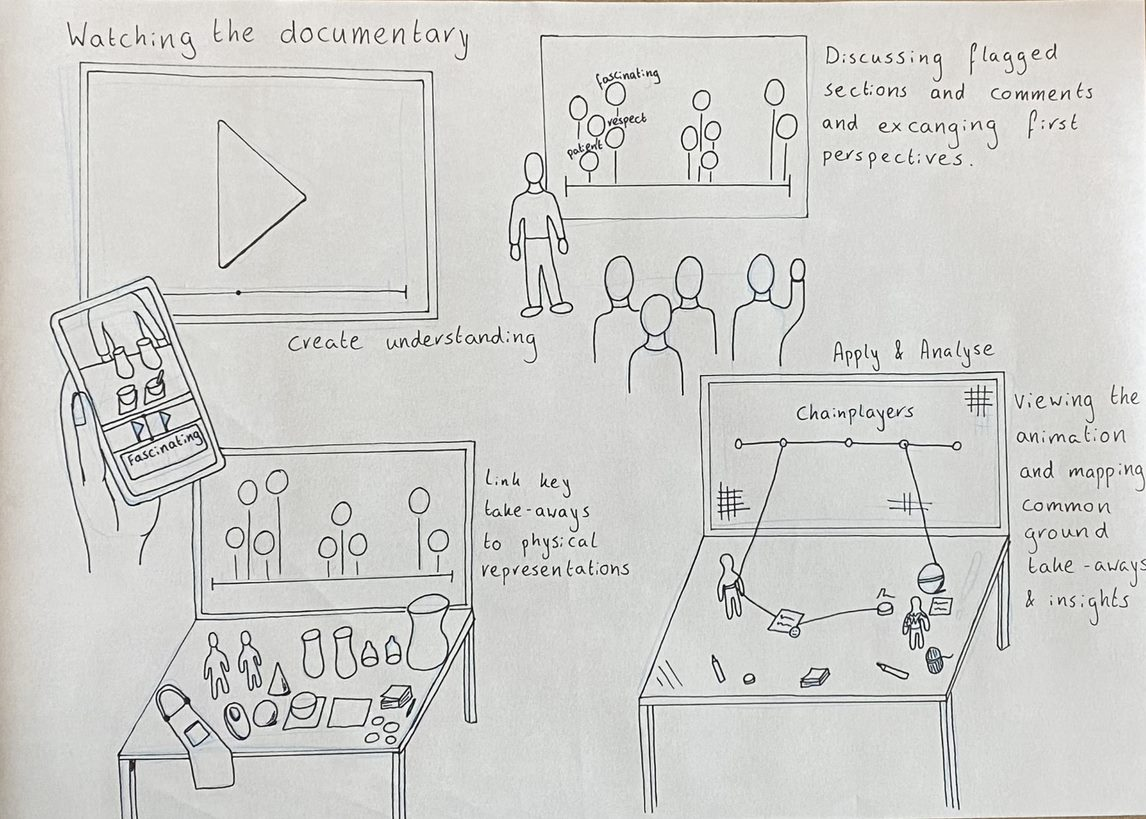 Watching the documentary
fascinating
respect
patent
Discussing flagged
sections and comments
and excanging first
perspectives.
create understanding
Fascinating
Link key
take-aways
to physical
representations
Apply & Analyse
Chainplayers
Viewing the
animation
and mapping
common
ground
take-aways
& insights